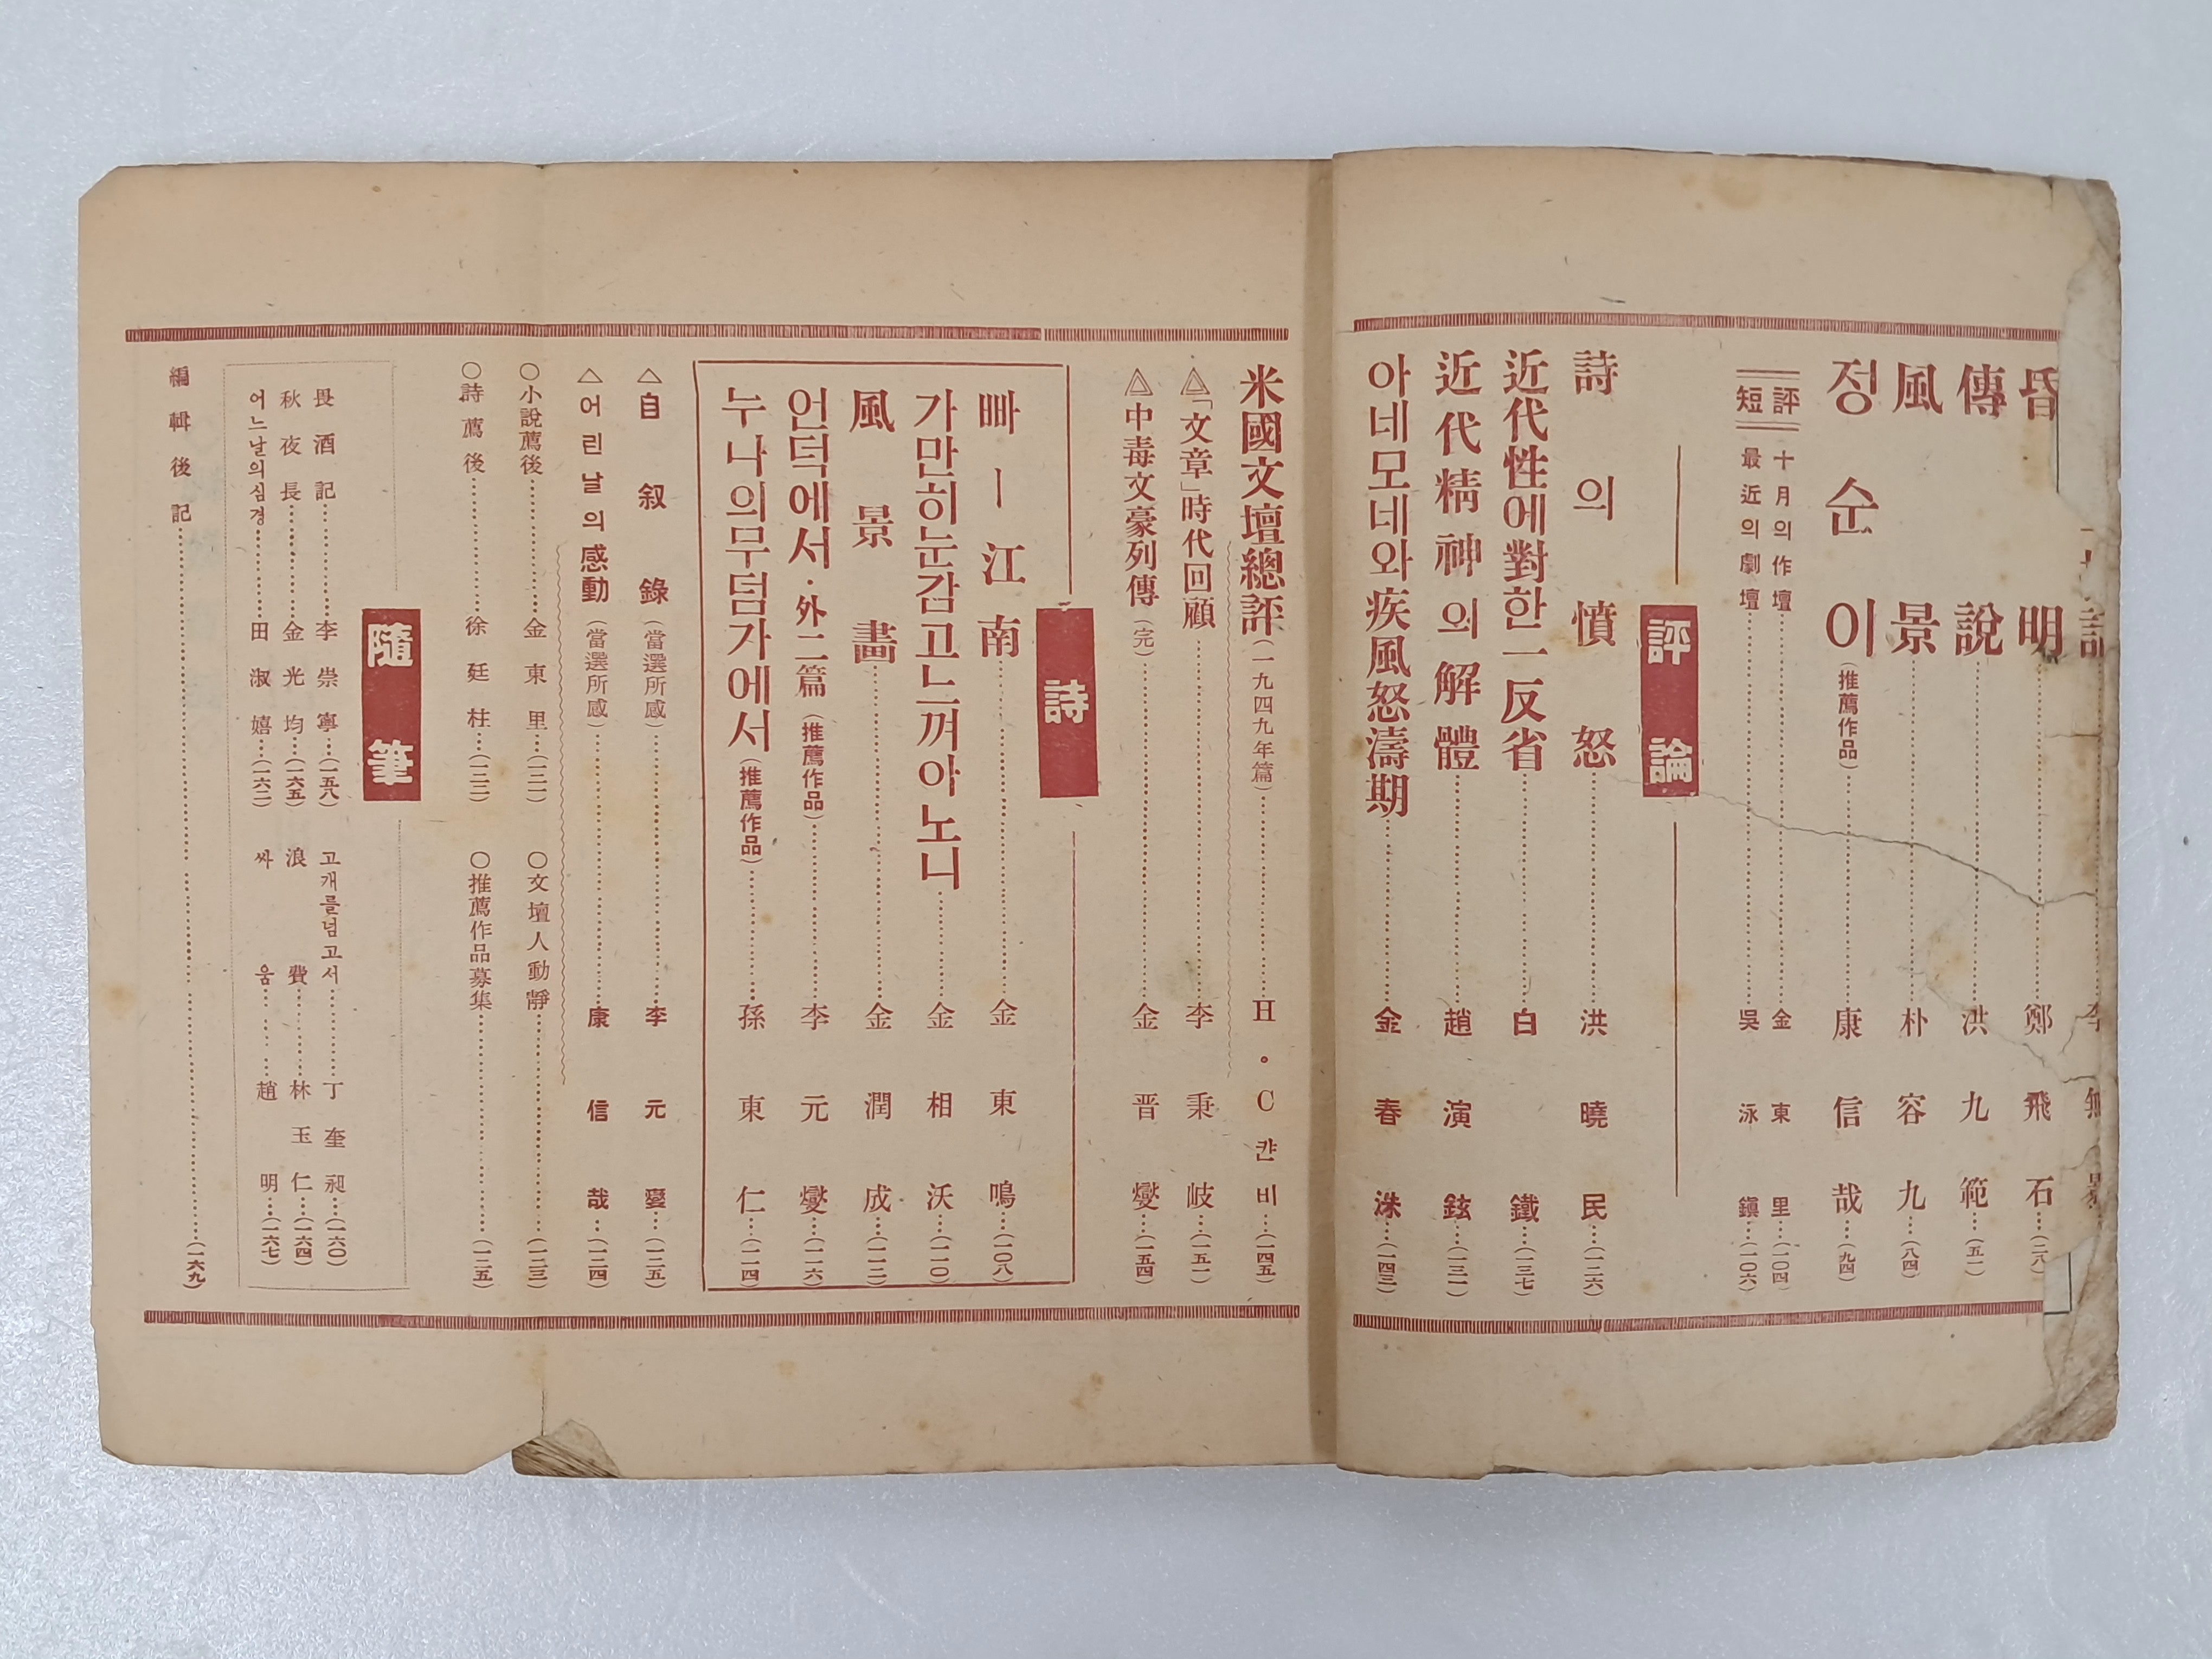 昏明 鄭飛石 (二八)
傳說 洪九範 (五一)
風景 朴容九 (八四)
정순이 (推薦作品) 康信哉 (九四)
短評
十月의作壇 金東里 (一〇四)
最近의劇壇 吳泳鎭 (一〇六)
評論
詩의憤怒 洪曉民 (一二六)
近代性에對한一反省 白鐵 (一三七)
近代精神의解體 趙演鉉 (一三一)
아네모네와疾風怒濤期 金春洙 (一四三)
米國文壇總評 (一九四九年篇) H。C 캰비 (一四五)
△「文章」時代回顧 李秉岐 (一五一)
△中毒文豪列傳 (完) 金晋燮 (一五四)
詩
빠ー江南 金東鳴 (一〇八)
가만히눈감고느껴아노니 金相沃 (一一〇)
風景畵 金潤成 (一一二)
언덕에서・外二篇 (推薦作品) 李元燮 (一一六)
누나의무덤가에서 (推薦作品) 孫東仁 (一一四)
△自叙錄 (當選所感) 李元燮 (一二五)
△어린날의感動 (當選所感) 康信哉 (一二四)
○小說薦後 金東里 (一二一)
○文壇人動靜 (一二三)
○詩薦後 徐廷柱 (一二二)
○推薦作品募集 (一二五)
隨筆
畏酒記 李崇寧 (一五八)
고개를넘고서 丁奎昶 (一六〇)
秋夜長 金光均 (一六五)
浪費 林玉仁 (一六四)
어느날의심경 田淑嬉 (一六二)
싸움 趙明 (一六七)
編輯後記 (一六九)